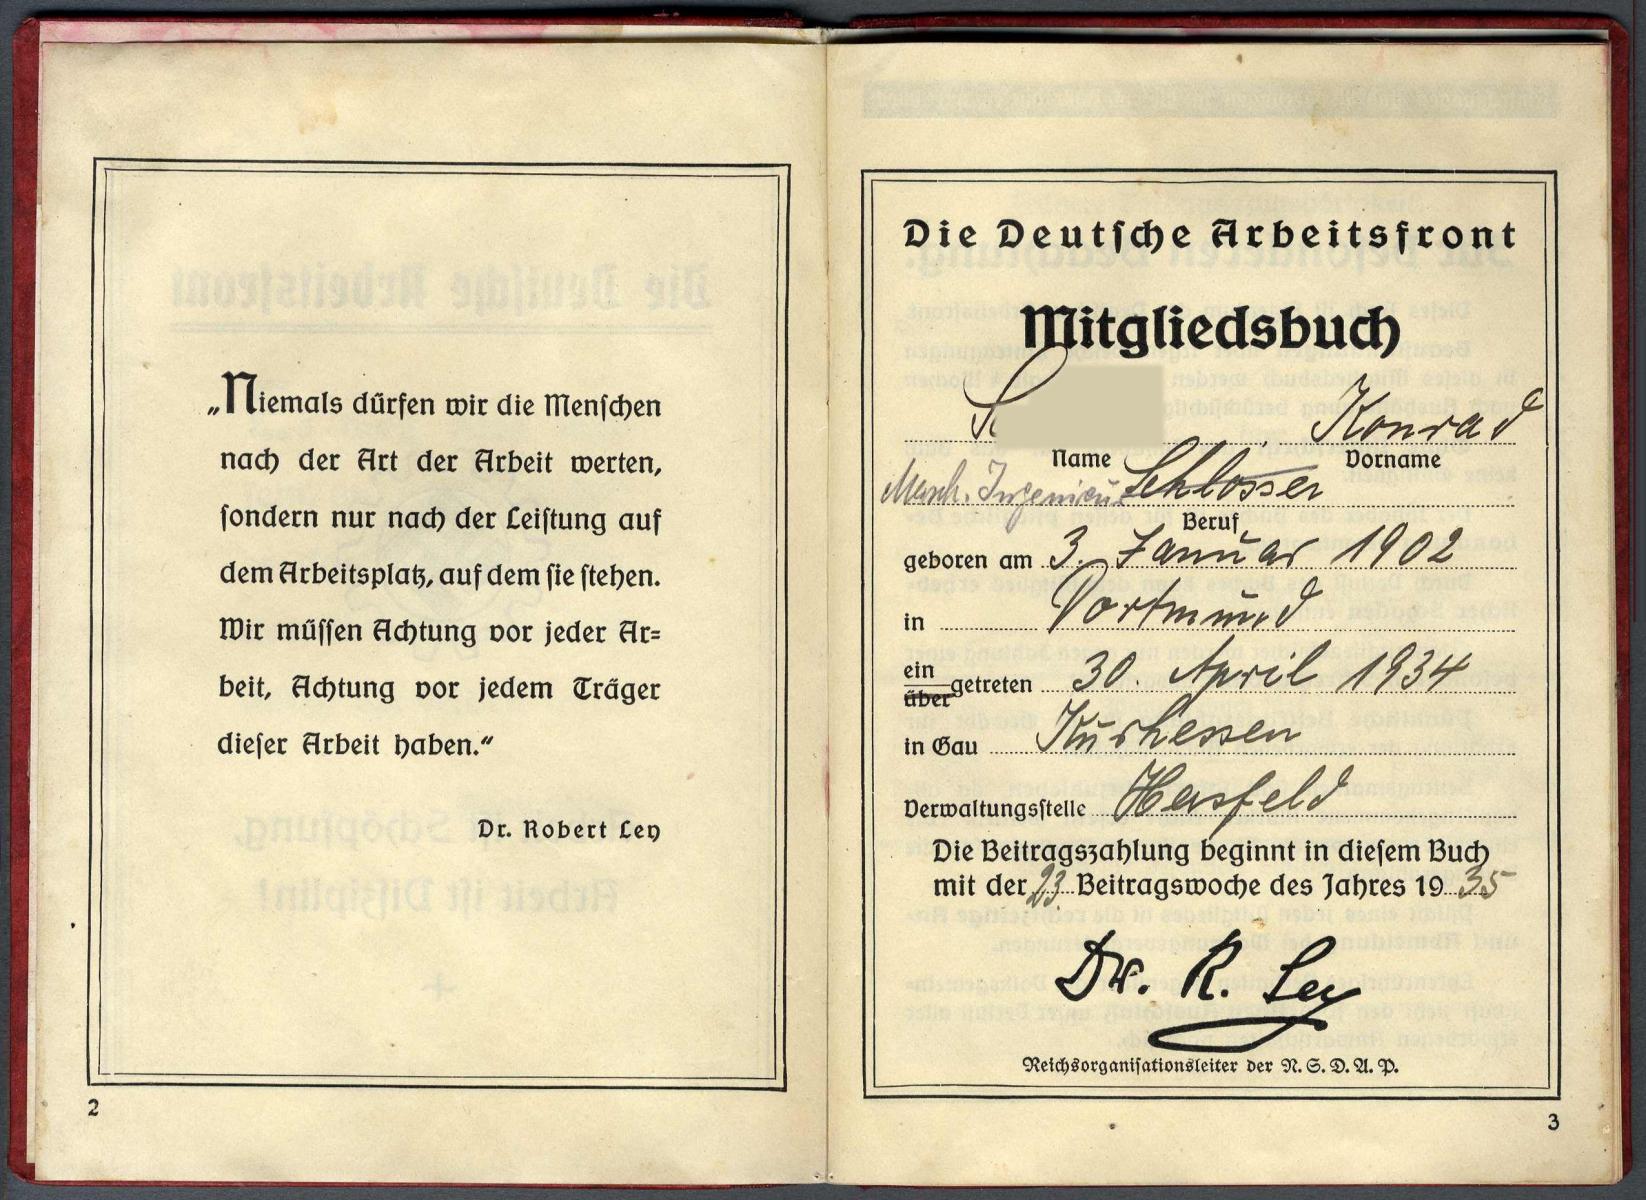 „Niemals dürfen wir die Menschen
nach der Art der Arbeit werten,
sondern nur nach der Leistung auf
dem Arbeitsplatz, auf dem sie stehen.
Wir müssen Achtung vor jeder Ar=
beit, Achtung vor jedem Träger
dieser Arbeit haben.“
Dr. Robert Ley
2
Die Deutsche Arbeitsfront
Mitgliedsbuch
Konrad
Name Vorname
Masch. Ingenieur Schlosser
Beruf
geboren am 3. Januar 1902
in Dortmund
ein
über getreten 30. April 1934
in Gau Kurhessen
Verwaltungsstelle Hersfeld
Die Beitragszahlung beginnt in diesem Buch
mit der 23. Beitragswoche des Jahres 1935
Dr. R. Ley
Reichsorganisationsleiter der N.S.D.A.P.
3